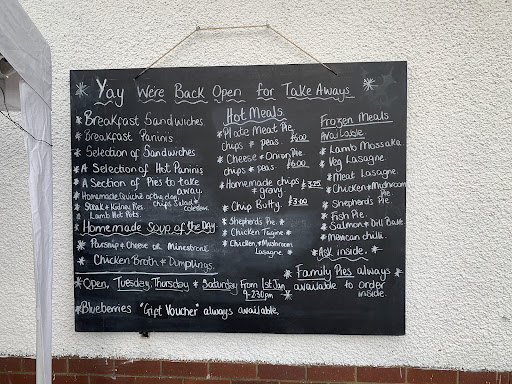 Yay Were Back Open for Take Aways
* Breakfast Sandwiches
* Breakfast Paninis
* Selection of Sandwiches
* A Selection of Hot Paninis
* A Section of Pies to take
away.
* Homemade Quiche of the day,
chips Salad & coleslaw
* Steak & Kidney Pies
* Lamb Hot Pots
* Homemade Soup of the Day
* Parsnip & Cheese or Minestrone
* Chicken Broth & Dumplings.
Hot Meals
* Plate Meat Pie
chips & peas. £6.00
* Cheese & Onion Pie
chips & peas. £6.00
* Homemade chips £3.25
& gravy
* Chip Butty. £3.00
* Shepherds Pie. *
* Chicken Tagine *
* Chicken & Mushroom
Lasagne *
Frozen Meals
Available
* Lamb Mossaka
* Veg Lasagne
* Meat Lasagne
* Chicken & Mushroom
Pie
* Shepherds Pie.
* Fish Pie
* Salmon & Dill Bake
* Mexican chilli.
* Ask inside. *
* Family Pies always *
available to order
inside.
* Open, Tuesday, Thursday & Saturday From 1st Jan
9-2.30pm
* Blueberries "Gift Voucher" always available,